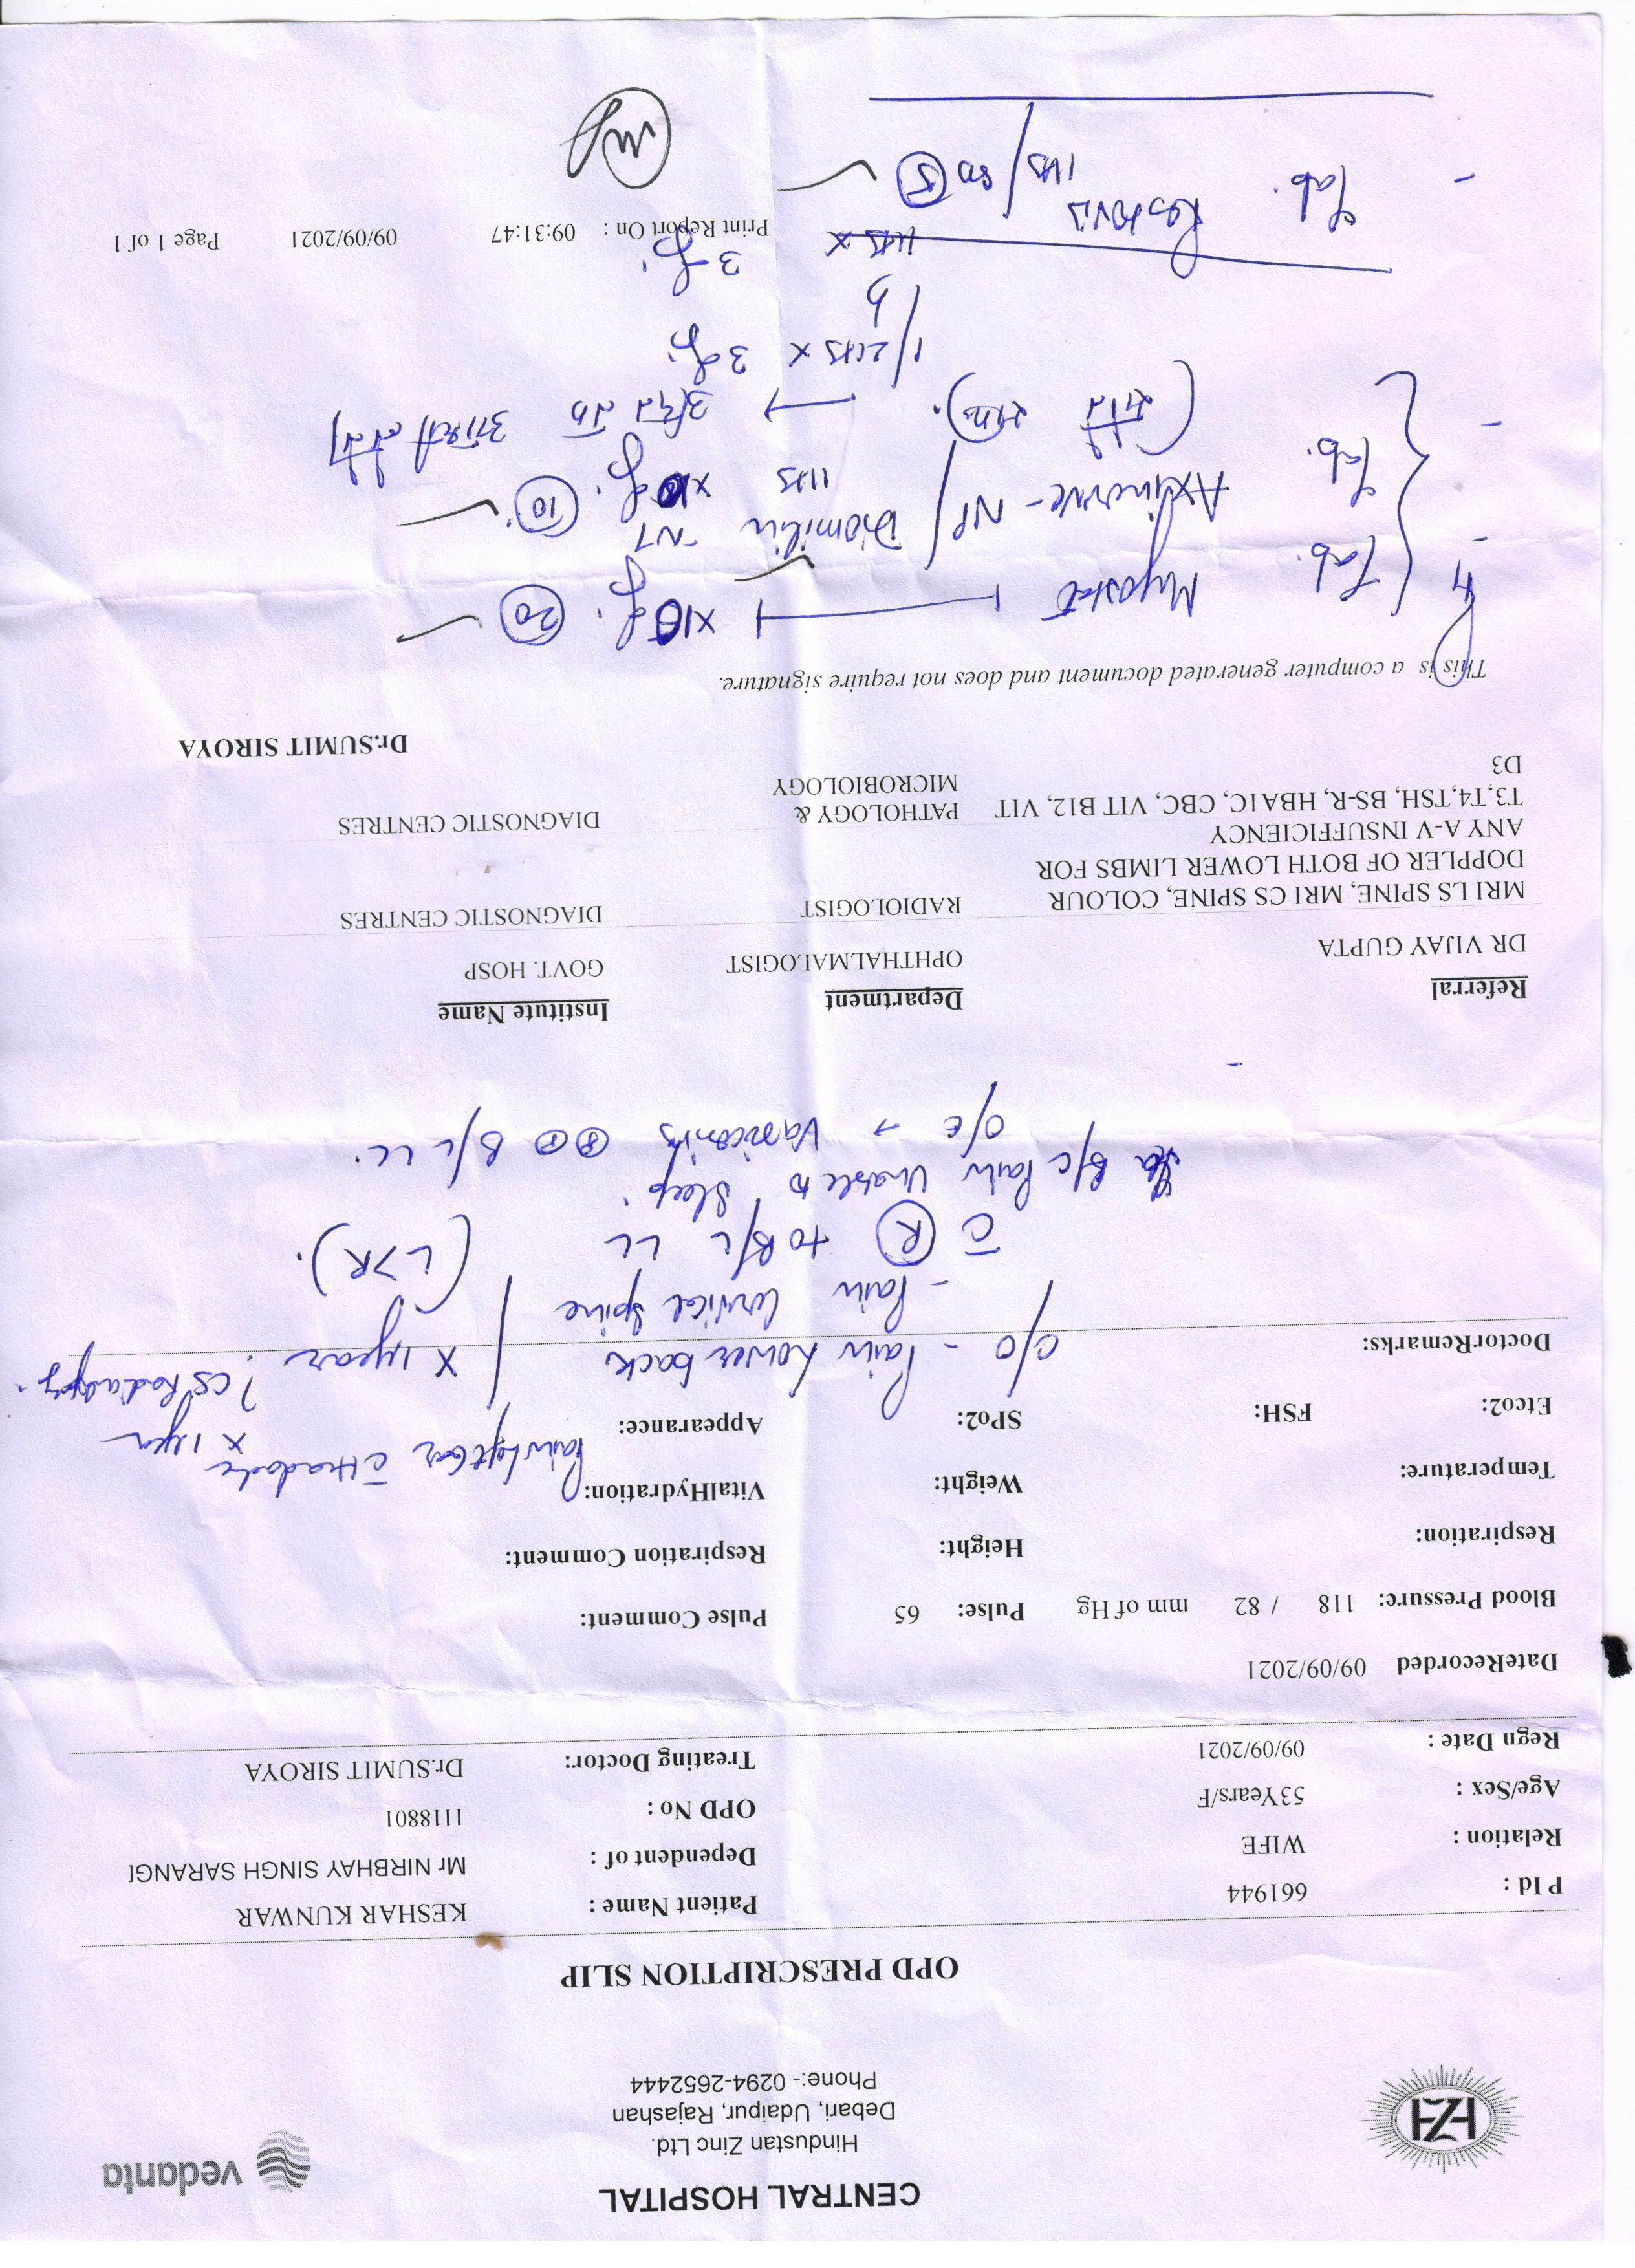 CENTRAL HOSPITAL
Hindustan Zinc Ltd.
Debari, Udaipur, Rajashan
Phone:- 0294-2652444
HZL
vedanta
OPD PRESCRIPTION SLIP
P Id : 661944 Patient Name : KESHAR KUNWAR
Relation : WIFE Dependent of : Mr NIRBHAY SINGH SARANGI
Age/Sex : 53Years/F OPD No : 1118801
Regn Date : 09/09/2021 Treating Doctor: Dr.SUMIT SIROYA
DateRecorded 09/09/2021
Blood Pressure: 118 / 82 mm of Hg Pulse: 65 Pulse Comment:
Respiration: Height: Respiration Comment:
Temperature: Weight: VitalHydration:
Etco2: FSH: SPo2: Appearance:
Pain Left Ear c̄ Headache x 1 year
DoctorRemarks:
C/O - Pain Lower back x 1 year ? CS
- Pain Cervical Spine
c̄ R to B/L LL (L>R).
B/c Pain Unable to Sleep.
O/E → Varicosity ++ B/L LL.
Referral Department Institute Name
DR VIJAY GUPTA OPHTHALMALOGIST GOVT. HOSP
MRI LS SPINE, MRI CS SPINE, COLOUR DOPPLER OF BOTH LOWER LIMBS FOR ANY A-V INSUFFICIENCY RADIOLOGIST DIAGNOSTIC CENTRES
T3,T4,TSH, BS-R, HBA1C, CBC, VIT B12, VIT D3 PATHOLOGY & MICROBIOLOGY DIAGNOSTIC CENTRES
Dr.SUMIT SIROYA
This is a computer generated document and does not require signature.
Tab. x10 20
Tab. Axinerve-NP / -NT 1HS x10 10
3
3
1HS x
Print Report On : 09:31:47 09/09/2021 Page 1 of 1
Tab. 1HS 5